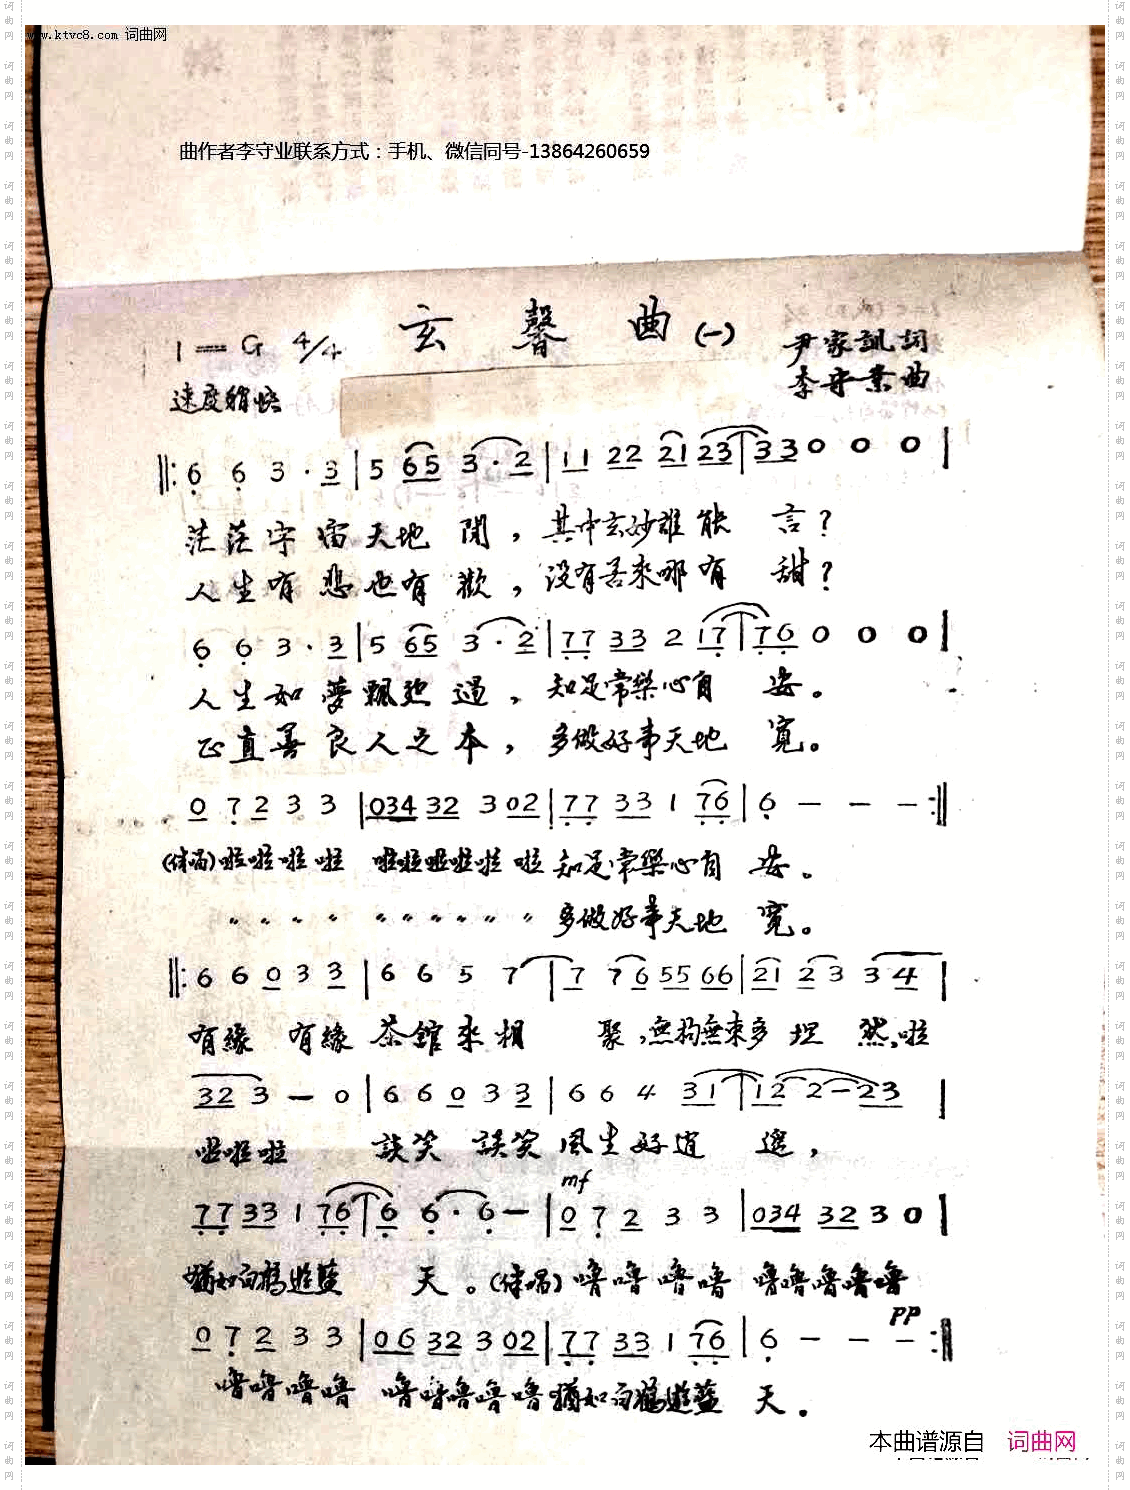 www.ktvc8.com 词曲网
曲作者李守业联系方式：手机、微信同号-13864260659
玄馨曲(一)
1=G 4/4
尹家訊詞
李守業曲
速度稍快
‖: 6 6 3 · 3 | 5 65 3 · 2 | 11 22 21 23 | 33 0 0 0 |
茫茫宇宙天地間，其中玄妙誰能言？
人生有悲也有歡，没有苦來哪有甜？
6 6 3 · 3 | 5 65 3 · 2 | 77 33 2 17 | 76 0 0 0 |
人生如夢飄逝過，知足常樂心自安。
正直善良人之本，多做好事天地寬。
0 7 2 3 3 | 034 32 3 02 | 77 33 1 76 | 6 — — — :‖
(伴唱)啦啦啦啦 啦啦啦啦啦啦知足常樂心自安。
〃〃〃〃 〃〃〃〃〃〃多做好事天地寬。
‖: 6 6 0 3 3 | 6 6 5 7 | 7 76 55 66 | 21 23 3 4 |
有緣 有緣 茶館來相聚，無拘無束多坦然，啦
32 3 — 0 | 6 6 0 3 3 | 6 6 4 31 | 12 2 — 23 |
啦啦啦 談笑 談笑 風生好逍遥，
mf
77 33 1 76 | 6 6 · 6 — | 0 7 2 3 3 | 034 32 3 0 |
猶如白鶴遊藍天。(伴唱)噜噜噜噜 噜噜噜噜噜
PP
0 7 2 3 3 | 06 32 3 02 | 77 33 1 76 | 6 — — — :‖
噜噜噜噜 噜噜噜噜噜猶如白鶴遊藍天。
本曲谱源自 词曲网